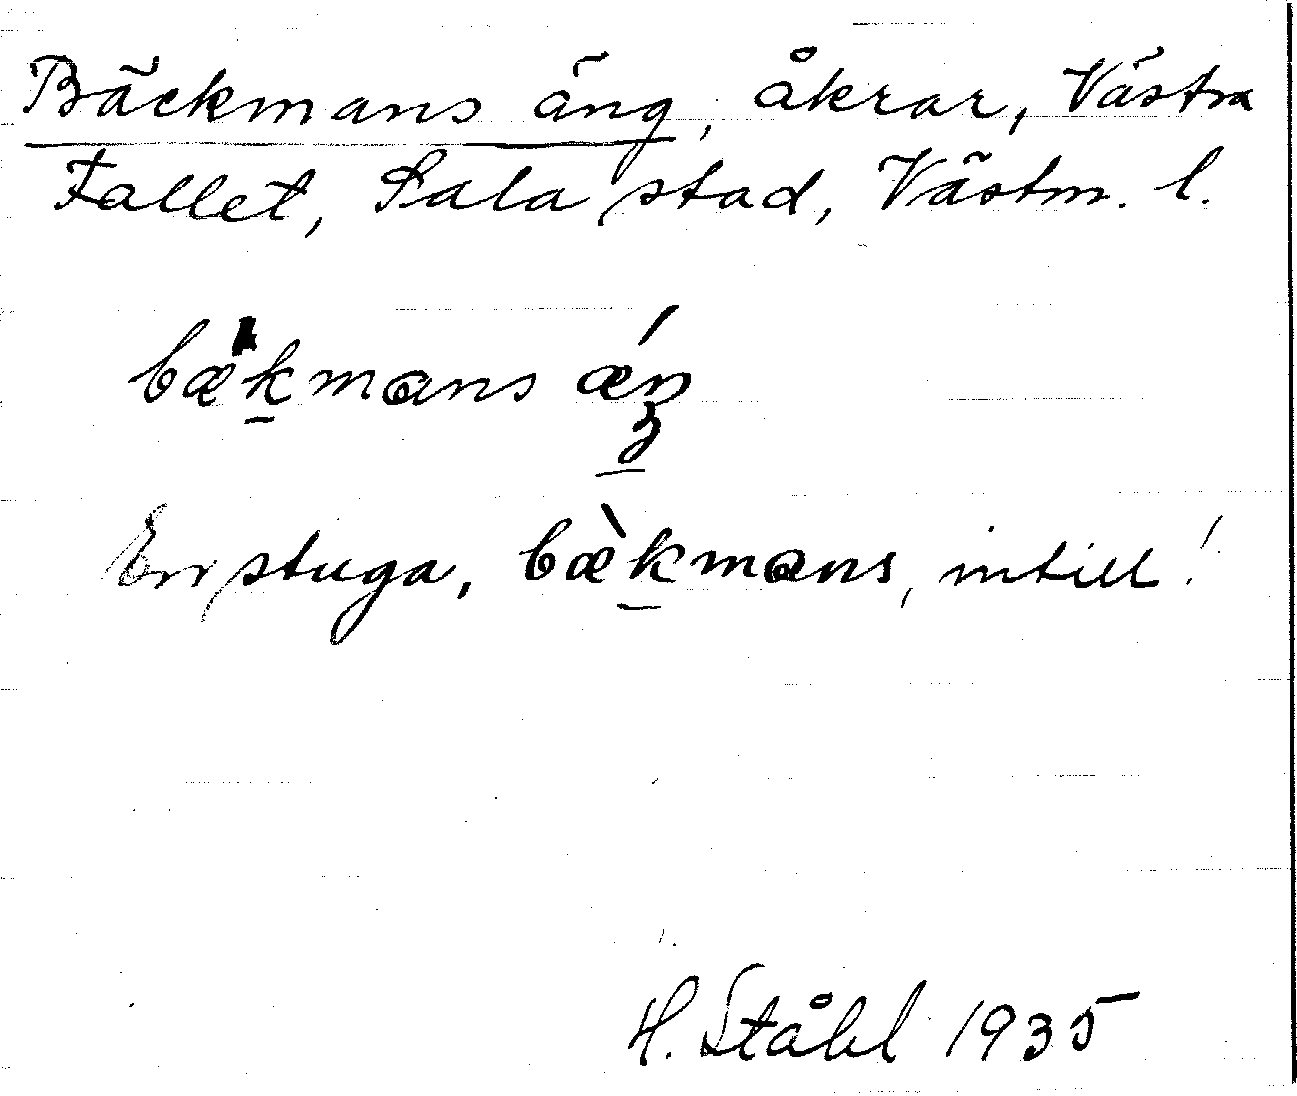 Bäckmans äng, åkrar, Västra
Fallet, Sala stad, Västm. l.
bæ̀k̠mans ǽŋ̠
En stuga, bæ̀k̠mans, intill!
H. Ståhl 1935